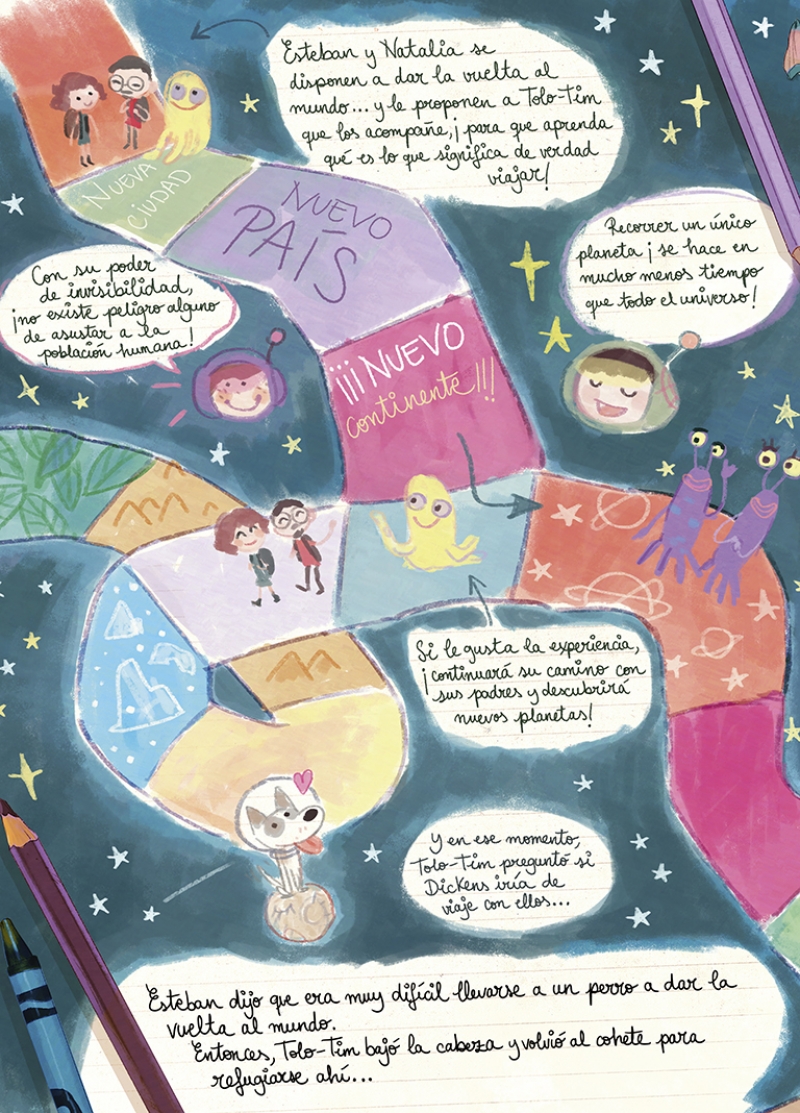 Esteban y Natalia se
disponen a dar la vuelta al
mundo... y le proponen a Tolo-Tim
que los acompañe, ¡para que aprenda
qué es lo que significa de verdad
viajar!
NUEVA
CIUDAD
NUEVO
PAÍS
Recorrer un único
planeta ¡se hace en
mucho menos tiempo
que todo el universo!
Con su poder
de invisibilidad,
¡no existe peligro alguno
de asustar a la
población humana!
¡¡¡NUEVO
continente!!!
Si le gusta la experiencia,
¡continuará su camino con
sus padres y descubrirá
nuevos planetas!
Y en ese momento,
Tolo-Tim preguntó si
Dickens iría de
viaje con ellos...
Esteban dijo que era muy difícil llevarse a un perro a dar la
vuelta al mundo.
Entonces, Tolo-Tim bajó la cabeza y volvió al cohete para
refugiarse ahí...